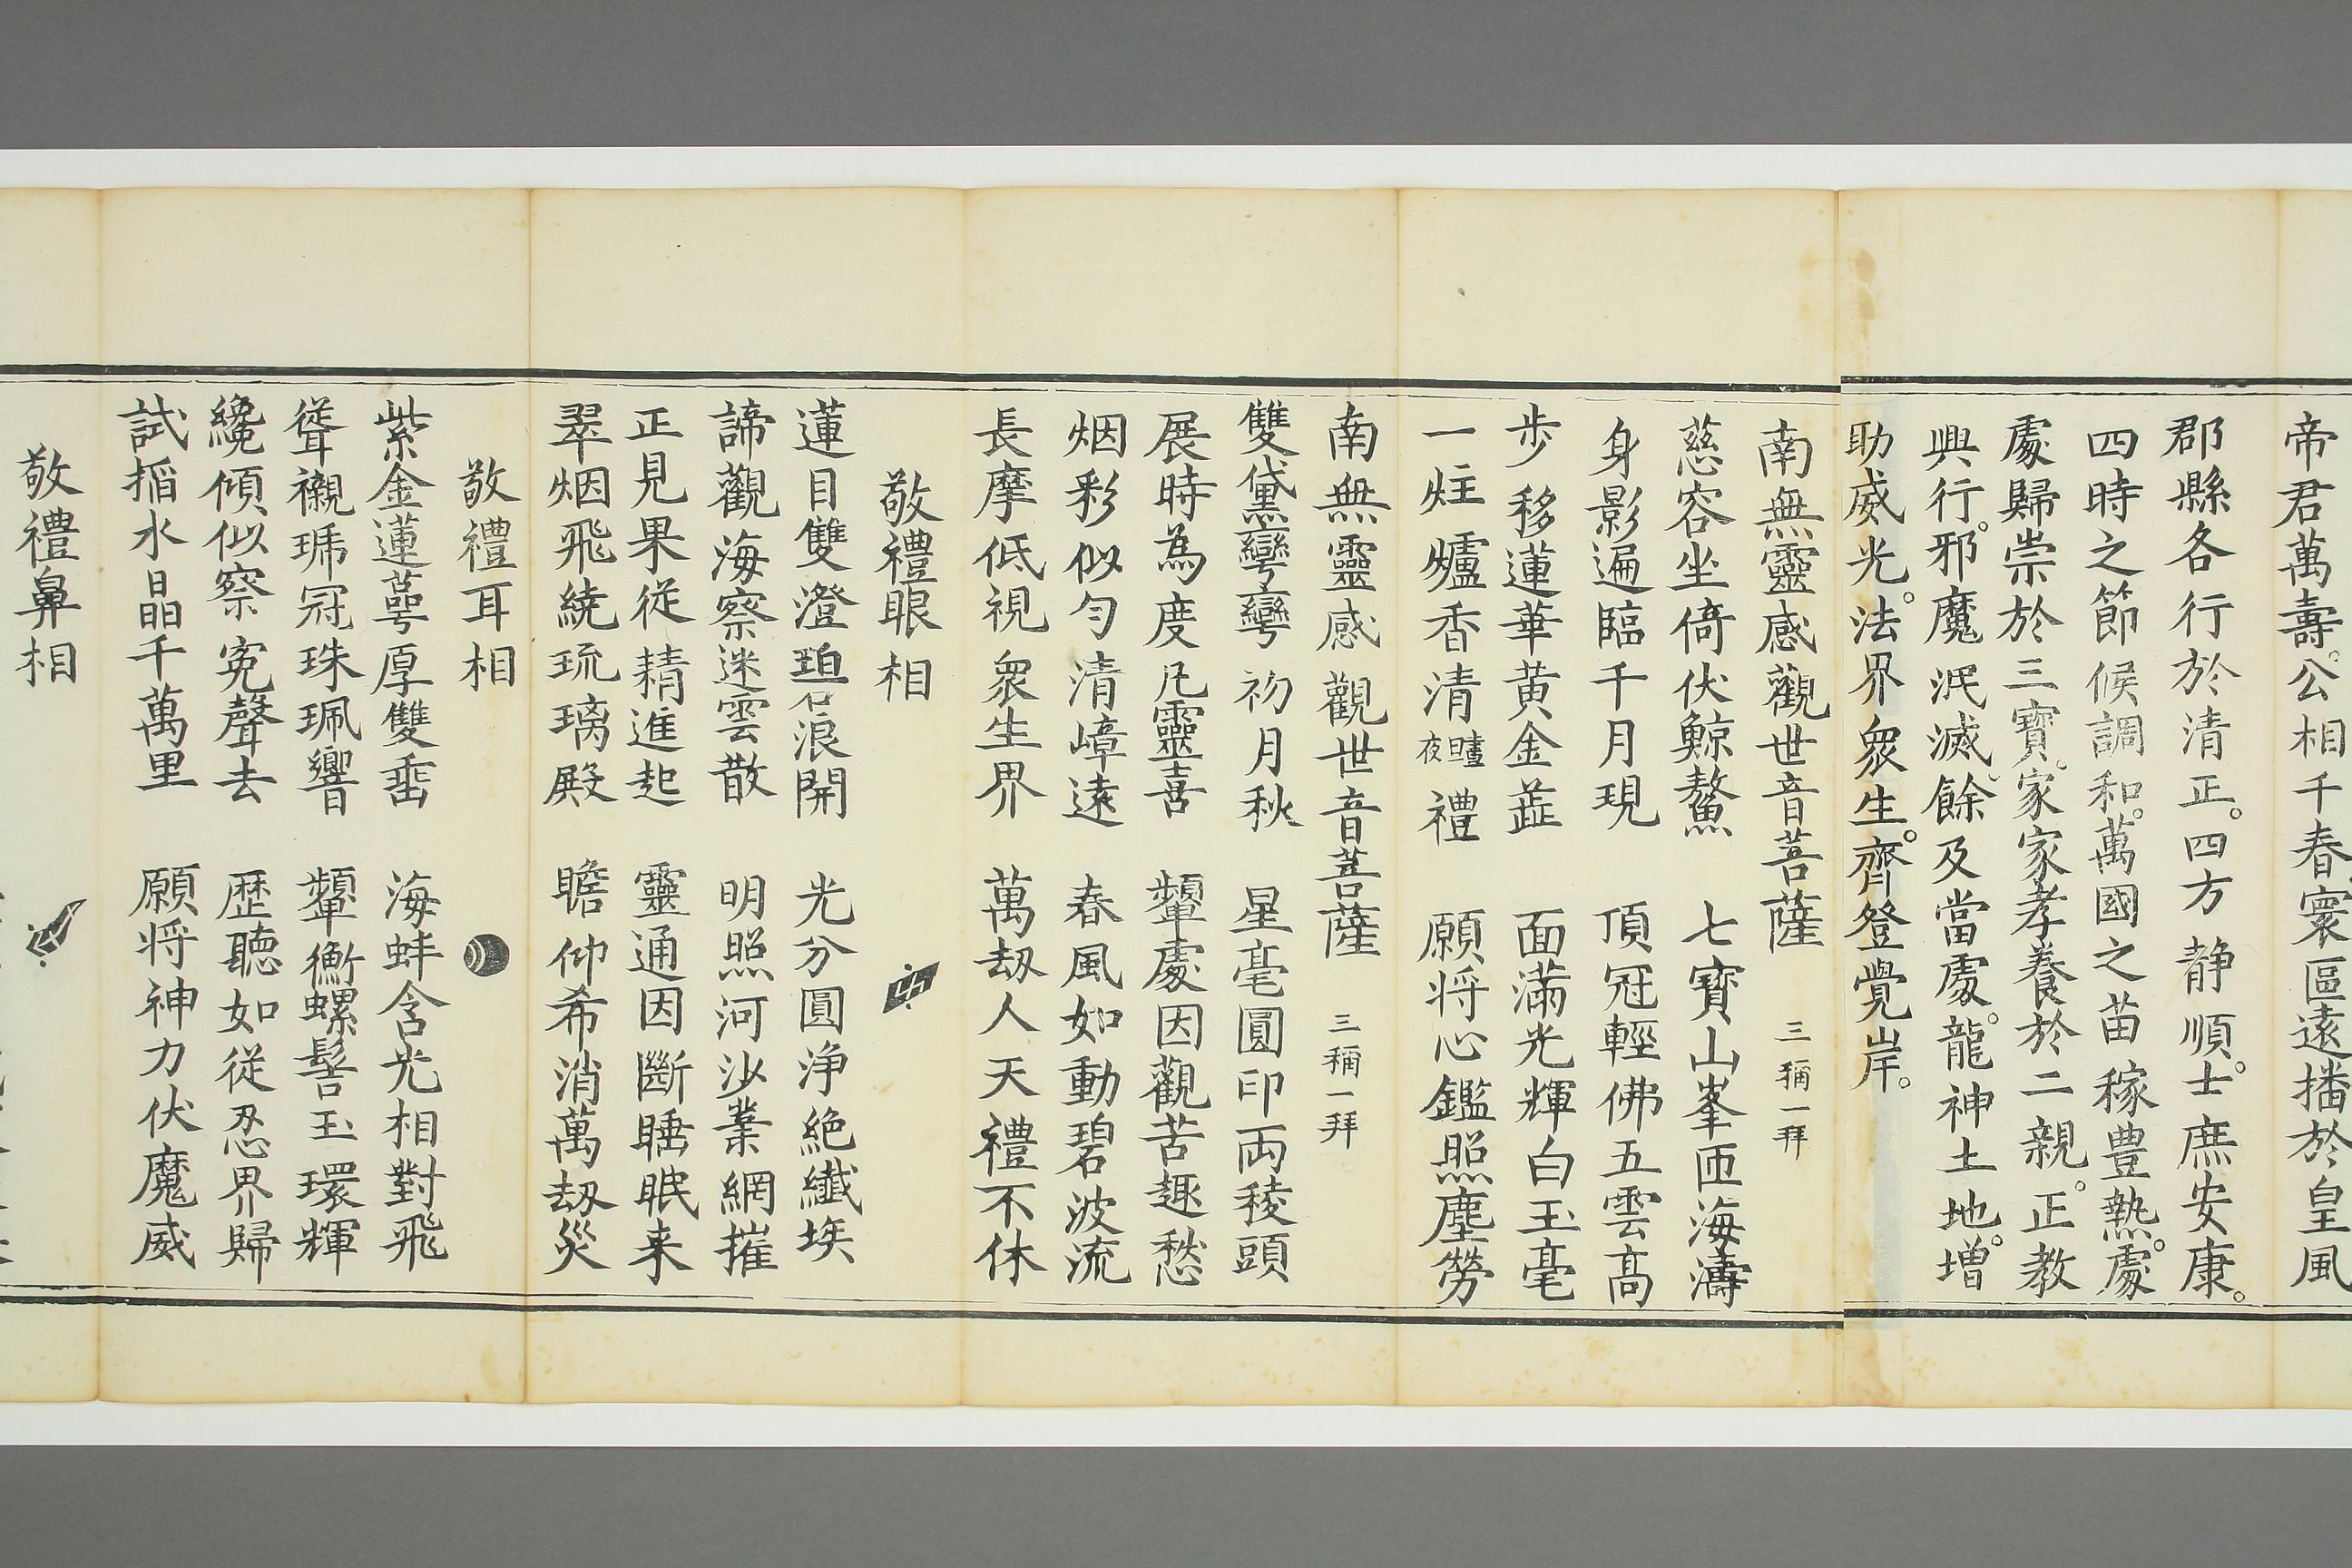 帝君萬壽。公相千春寰區遠播於皇風
郡縣各行於清正。四方静順。士庶安康。
四時之節候調和。萬國之苗稼豊熟。處
處歸崇於三寶。家家孝養於二親。正教
興行。邪魔泯滅。餘及當處。龍神土地。增
助威光。法界衆生。齊登覺岸。
南無靈感觀世音菩薩 三稱一拜
慈容坐倚伏鯨鰲 七寶山峯匝海濤
身影遍臨千月現 頂冠輕佛五雲高
步移蓮華黄金蘂 面滿光輝白玉毫
一炷爐香清晝夜禮 願将心鑑照塵勞
南無靈感觀世音菩薩 三稱一拜
雙黛彎彎初月秋 星毫圓印両稜頭
展時為度凡靈喜 顰處因觀苦趣愁
烟彩似勻清嶂遠 春風如動碧波流
長摩低視衆生界 萬刼人天禮不休
敬禮眼相
蓮目雙澄碧浪開 光分圓浄絶纖埃
諦觀海察迷雲散 明照河沙業網摧
正見果從精進起 靈通因斷睡眠来
翠烟飛繞琉璃殿 瞻仰希消萬刼災
敬禮耳相
紫金蓮萼厚雙垂 海蚌含光相對飛
聳襯冠珠珮響 顰衡螺髻玉環輝
纔傾似察寃聲去 歴聽如從忍界歸
試搯水晶千萬里 願将神力伏魔威
敬禮鼻相